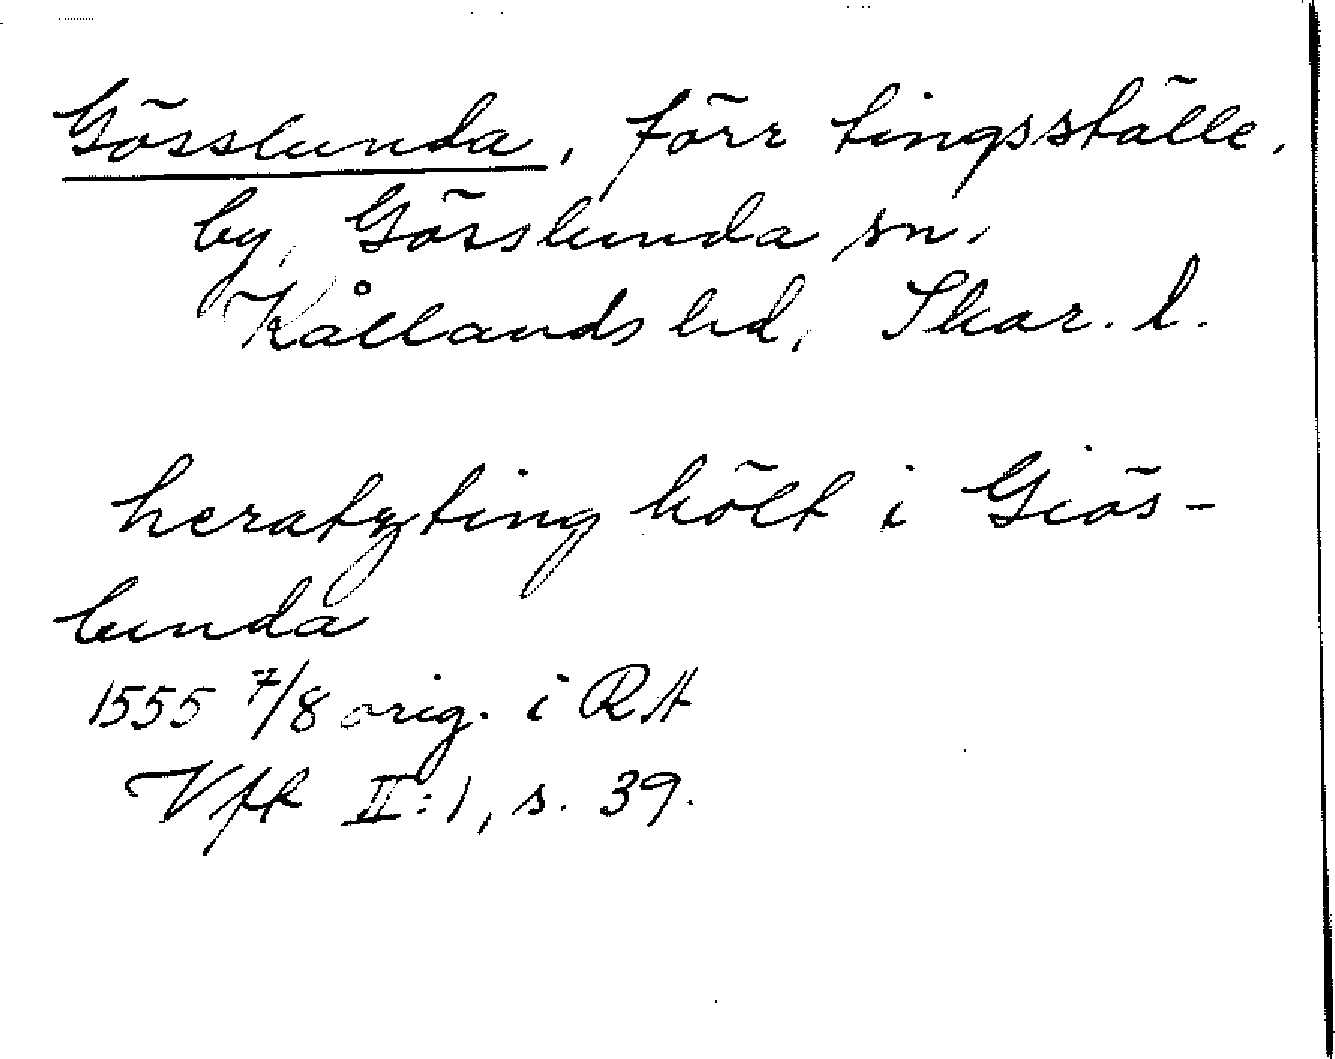 Gösslunda, förr tingsställe,
by, Gösslunda sn,
Kållands hd, Skar. l.
heratzting hölt i Giös-
lunda
1555 7/8 orig. i RA
Vfk II:1, s. 39.